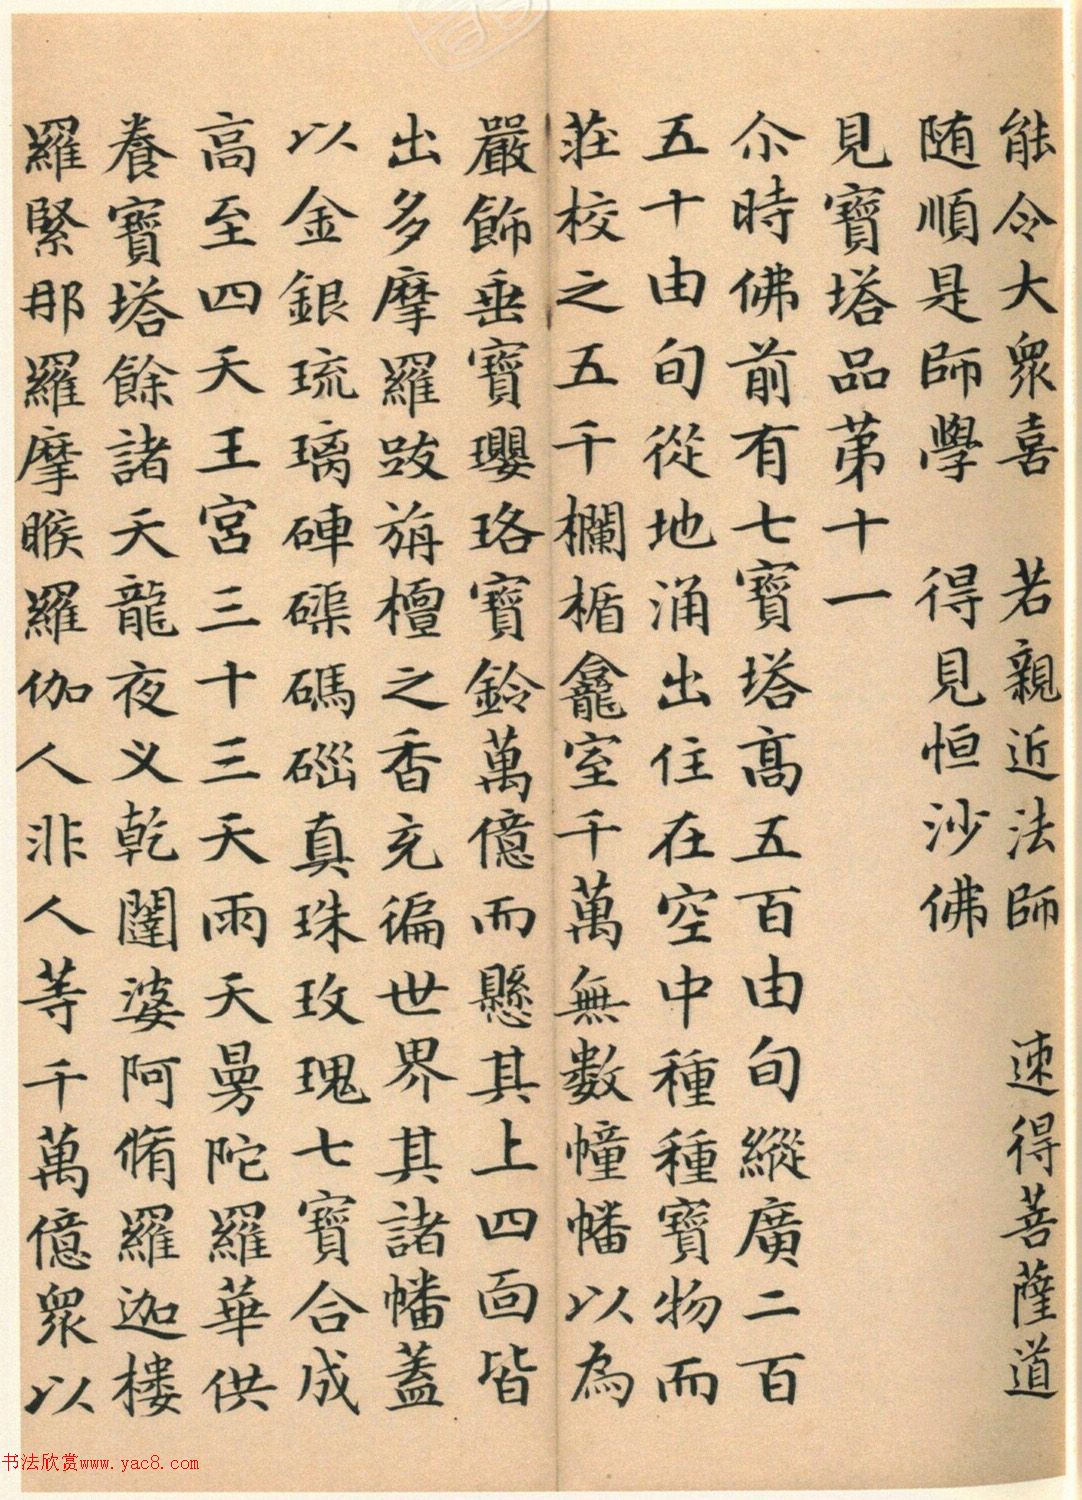 能令大眾喜　若親近法師　速得菩薩道
随順是師學　得見恒沙佛
見寶塔品苐十一
尒時佛前有七寶塔髙五百由旬縱廣二百
五十由旬從地涌出住在空中種種寶物而
莊校之五千欄楯龕室千萬無數幢幡以為
嚴飾垂寶瓔珞寶鈴萬億而懸其上四面皆
出多摩羅跋旃檀之香充徧世界其諸幡蓋
以金銀琉璃硨磲碼碯真珠玫瑰七寶合成
高至四天王宮三十三天天雨天曼陀羅華供
養寶塔餘諸天龍夜义乾闥婆阿脩羅迦樓
羅緊那羅摩睺羅伽人非人等千萬億眾以
书法欣赏www.yac8.com